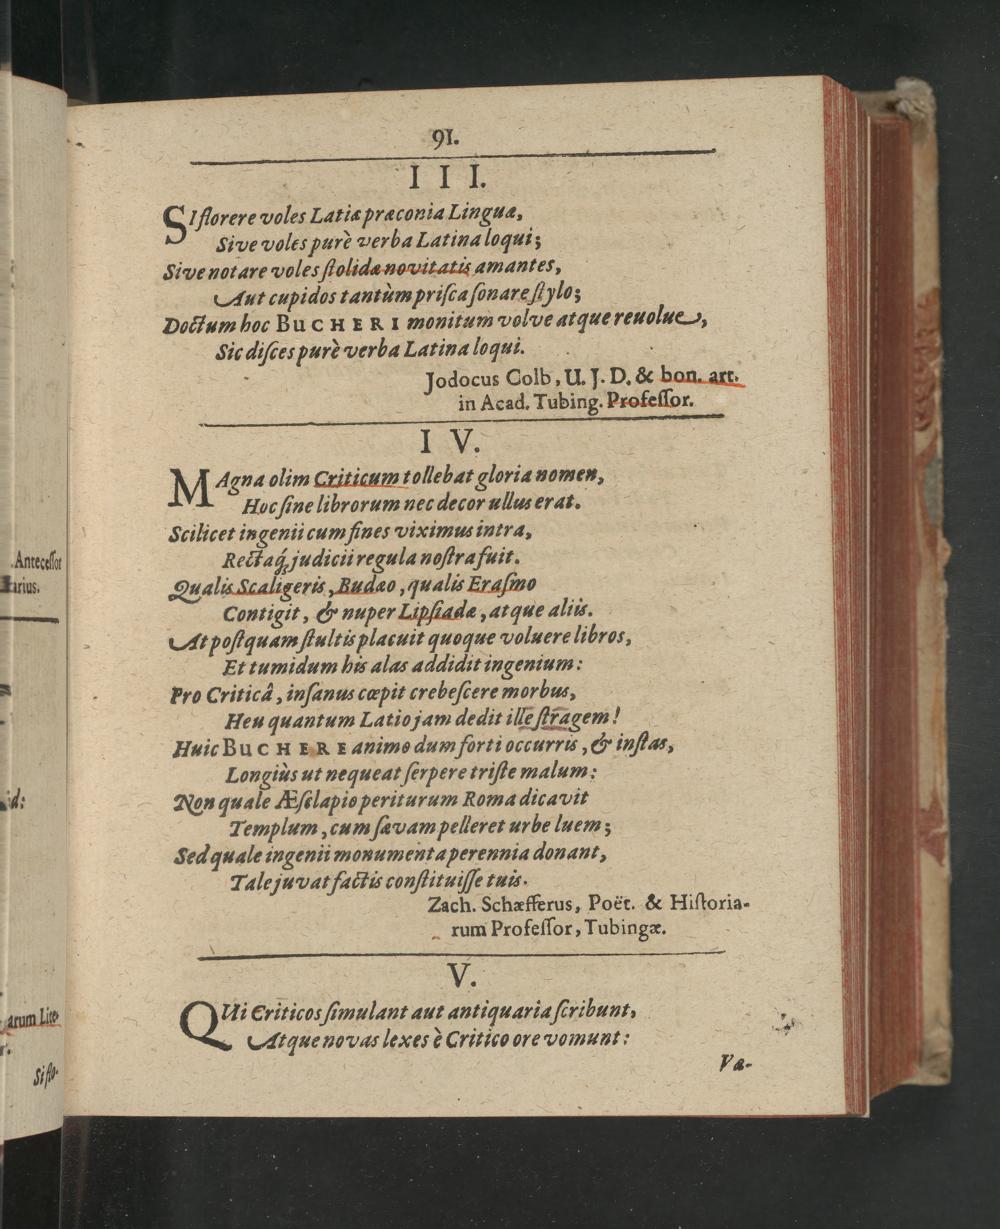 .Antecessor
arius.
id:
arum Lite-
r.
Si flo-
91.
III.
SI florere voles Latiæ præconia Linguæ,
Sive voles purè verba Latina loqui;
Sive notare voles stolidæ novitatis amantes,
Aut cupidos tantùm prisca sonare stylo;
Doctum hoc BUCHERI monitum volve atque reuolue,
Sic disces purè verba Latina loqui.
Jodocus Colb, U. J. D. & bon. art.
in Acad. Tubing. Professor.
IV.
MAgna olim Criticum tollebat gloria nomen,
Hoc sine librorum nec decor ullus erat.
Scilicet ingenii cum fines viximus intra,
Rectaq́; judicii regula nostra fuit.
Qualis Scaligeris, Budæo, qualis Erasmo
Contigit, & nuper Lipsiadæ, atque aliis.
At postquam stultis placuit quoque voluere libros,
Et tumidum his alas addidit ingenium:
Pro Criticâ, insanus cœpit crebescere morbus,
Heu quantum Latio jam dedit ille stragem!
Huic BUCHERE animo dum forti occurris, & instas,
Longiùs ut nequeat serpere triste malum:
Non quale Æsclapio periturum Roma dicavit
Templum, cum sævam pelleret urbe luem;
Sed quale ingenii monumenta perennia donant,
Tale juvat factis constituisse tuis.
Zach. Schæfferus, Poët. & Historia-
rum Professor, Tubingæ.
V.
QUi Criticos simulant aut antiquaria scribunt,
Atque novas lexes è Critico ore vomunt:
Væ-